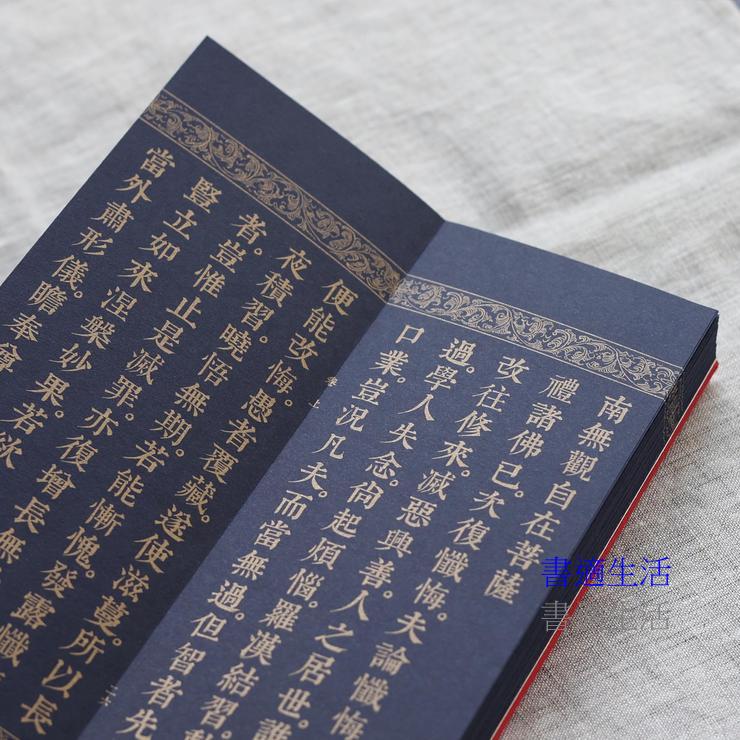 南無觀自在菩薩
禮諸佛已。次復懺悔。夫論懺悔
改往修來。滅惡興善。人之居世。誰
過。學人失念。尚起煩惱。羅漢結習。
口業。豈況凡夫。而當無過。但智者先
卷上
二六
便能改悔。愚者覆藏。遂使滋蔓。所以長
夜積習。曉悟無期。若能慚愧。發露懺
者。豈惟止是滅罪。亦復增長無
豎立如來涅槃妙果。若欲
當外肅形儀。瞻奉尊
書適生活
書 生活